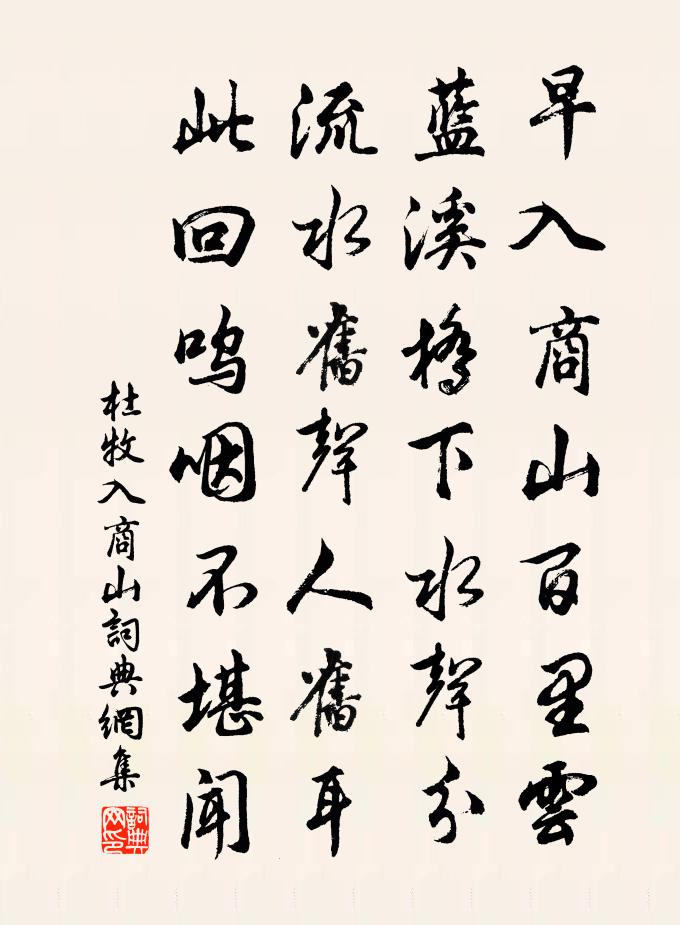 早入商山百里雲
藍溪橋下水聲分
流水舊聲人舊耳
此回嗚咽不堪聞
杜牧入商山詞典網集
詞典网印